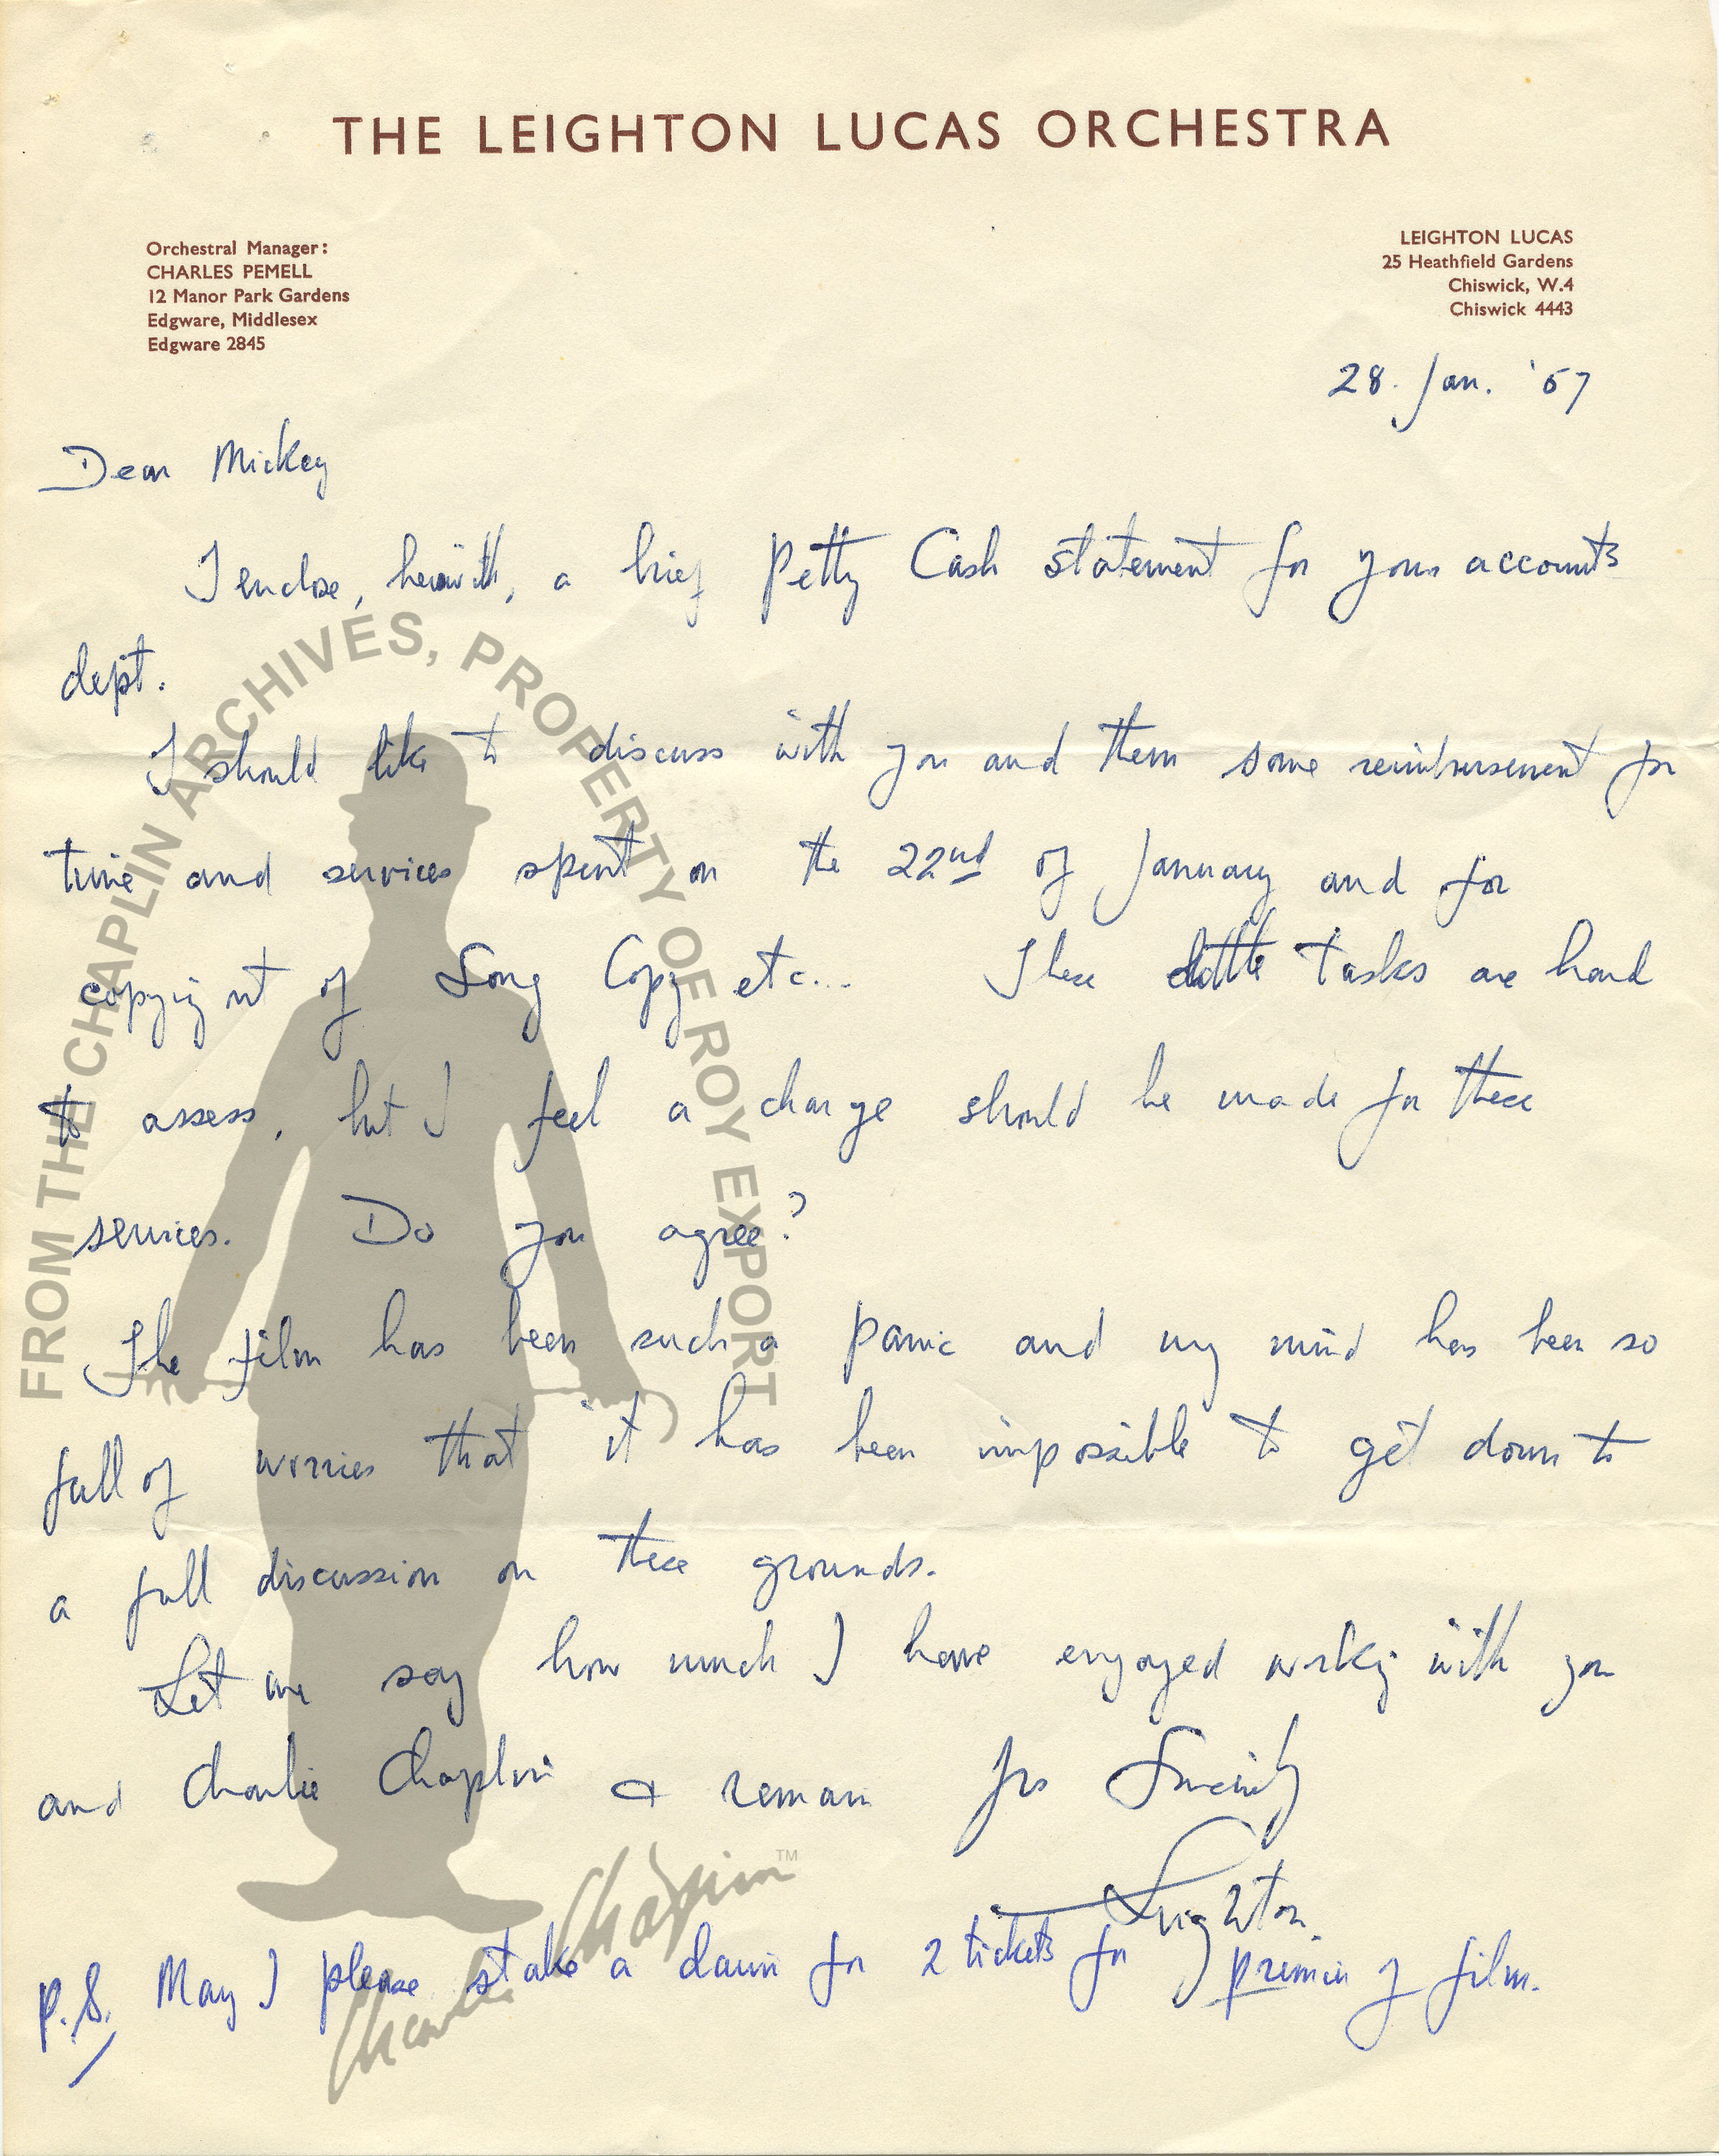 THE LEIGHTON LUCAS ORCHESTRA
Orchestral Manager:
CHARLES PEMELL
12 Manor Park Gardens
Edgware, Middlesex
Edgware 2845
LEIGHTON LUCAS
25 Heathfield Gardens
Chiswick, W.4
Chiswick 4443
28. Jan. '67
Dear Mickey
I enclose, herewith, a brief Petty Cash statement for your accounts
dept.
I should like to discuss with you and them some reimbursement for
time and services spent on the 22nd of January and for
copying out of Song Copy etc... These little tasks are hard
to assess, but I feel a charge should be made for these
services. Do you agree?
The film has been such a panic and my mind has been so
full of worries that it has been impossible to get down to
a full discussion on these grounds.
Let me say how much I have enjoyed working with you
and Charlie Chaplin & remain Yrs Sincerely
Leighton
P.S. May I please stake a claim for 2 tickets for premier of film.
FROM THE CHAPLIN ARCHIVES, PROPERTY OF ROY EXPORT
Charlie Chaplin TM